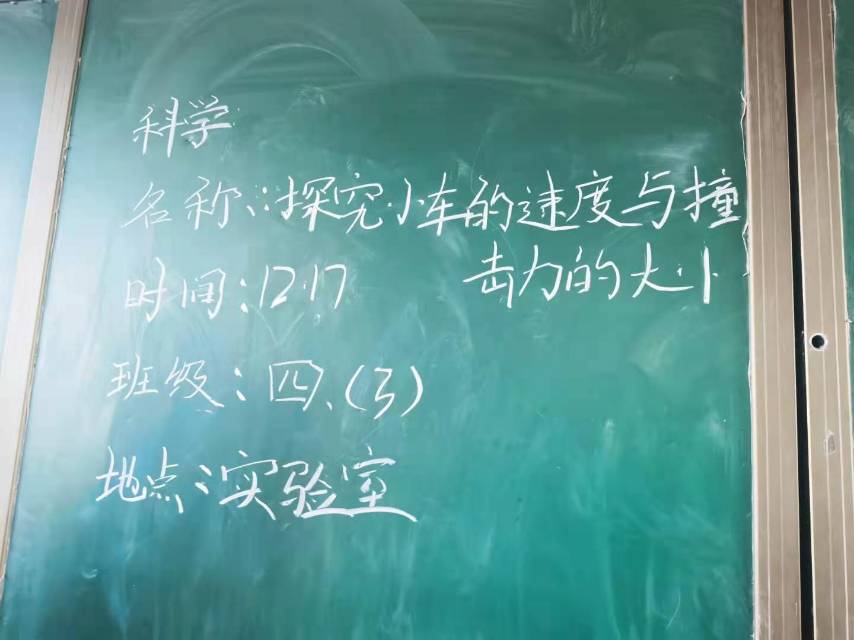 科学
名称:探究小车的速度与撞
击力的大小
时间:12.17
班级:四、(3)
地点:实验室